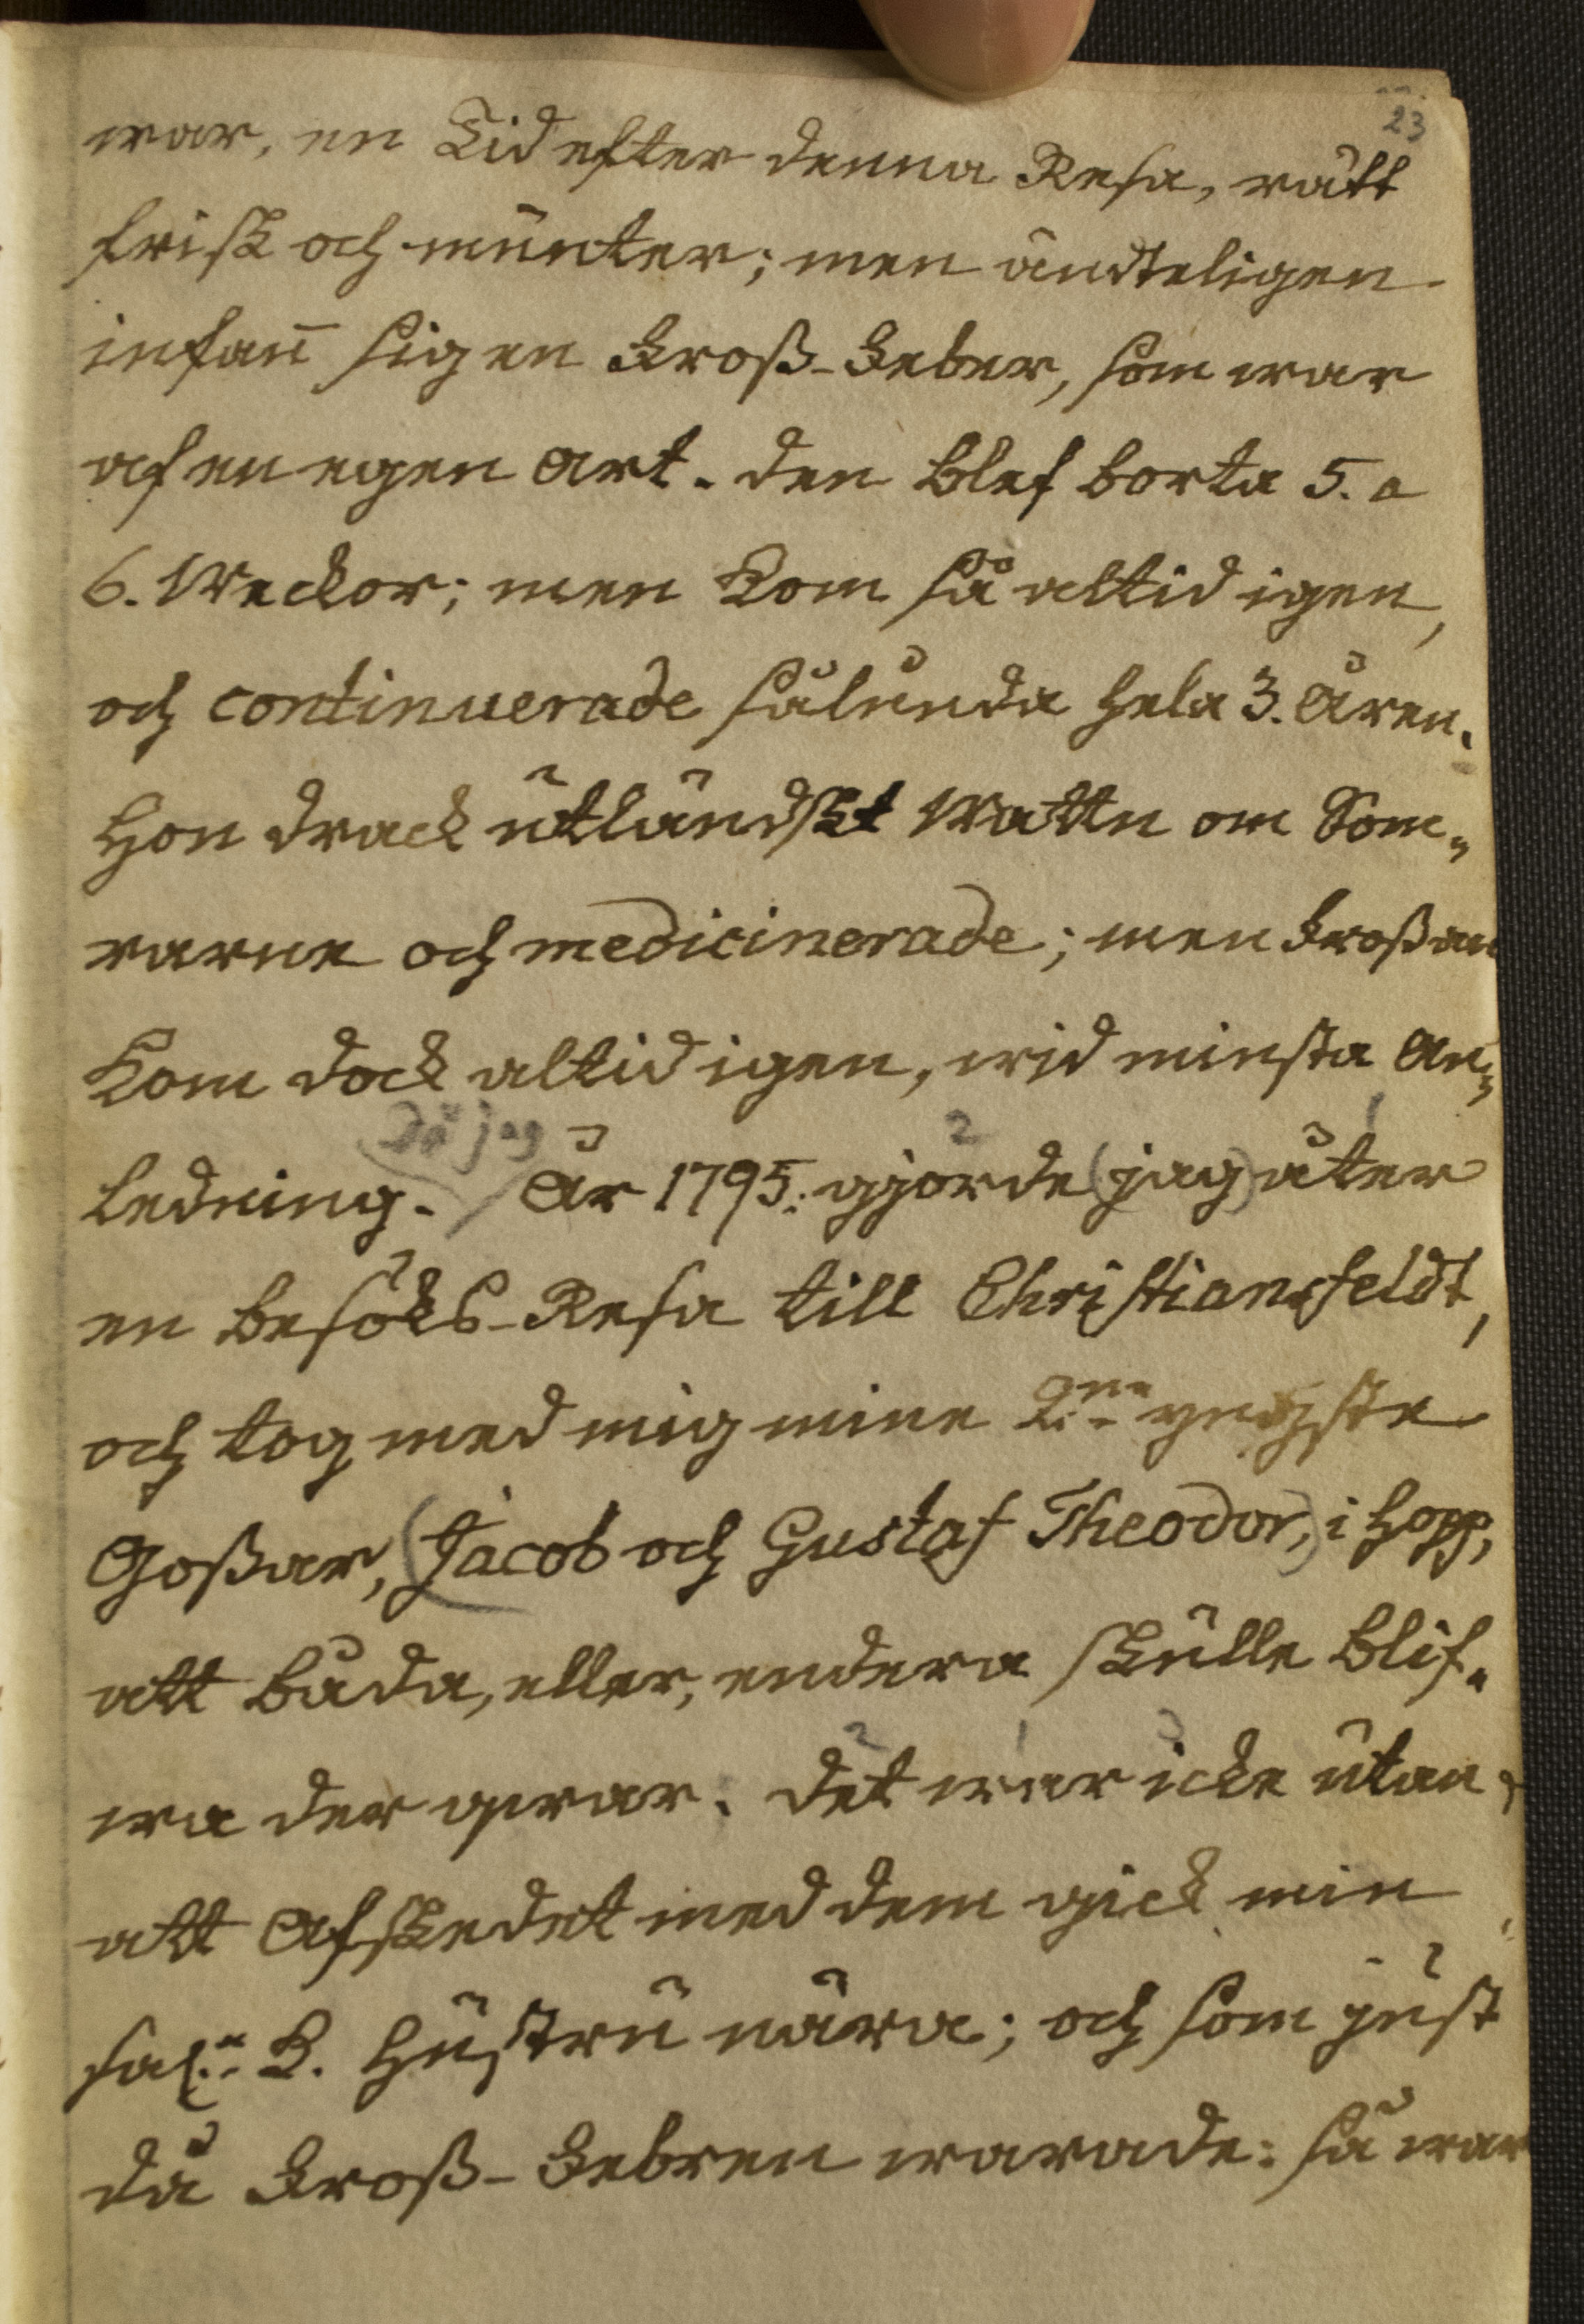 23
war, en Tid efter denna Resa, rätt
frisk och munter; men ändteligen
infañ sig en Fross-Feber, som war
af en egen Art. Den blef borta 5. a
6. Weckor; men kom så altid igen,
och continuerade sålunda hela 3. Åren.
Hon drack utländskt Wattn om Som„
rarne och medicinerade; men Frossan
kom dock altid igen, wid minsta An„
Då jag 2 1
ledning. / År 1795. gjorde (jag) åter
en Besöks-Resa till Christiansfeldt,
och tog med mig mine 2.ne yngste
Gossar, (Jacob och Gustaf Theodor,) i hopp,
att båda, eller, endera skulle blif„
2 1 3
wa der qwar. Det war icke utan,
att Afskedet med dem gick min
sal. k. Hustru nära; och som just
då Fross-Febren warade: så war